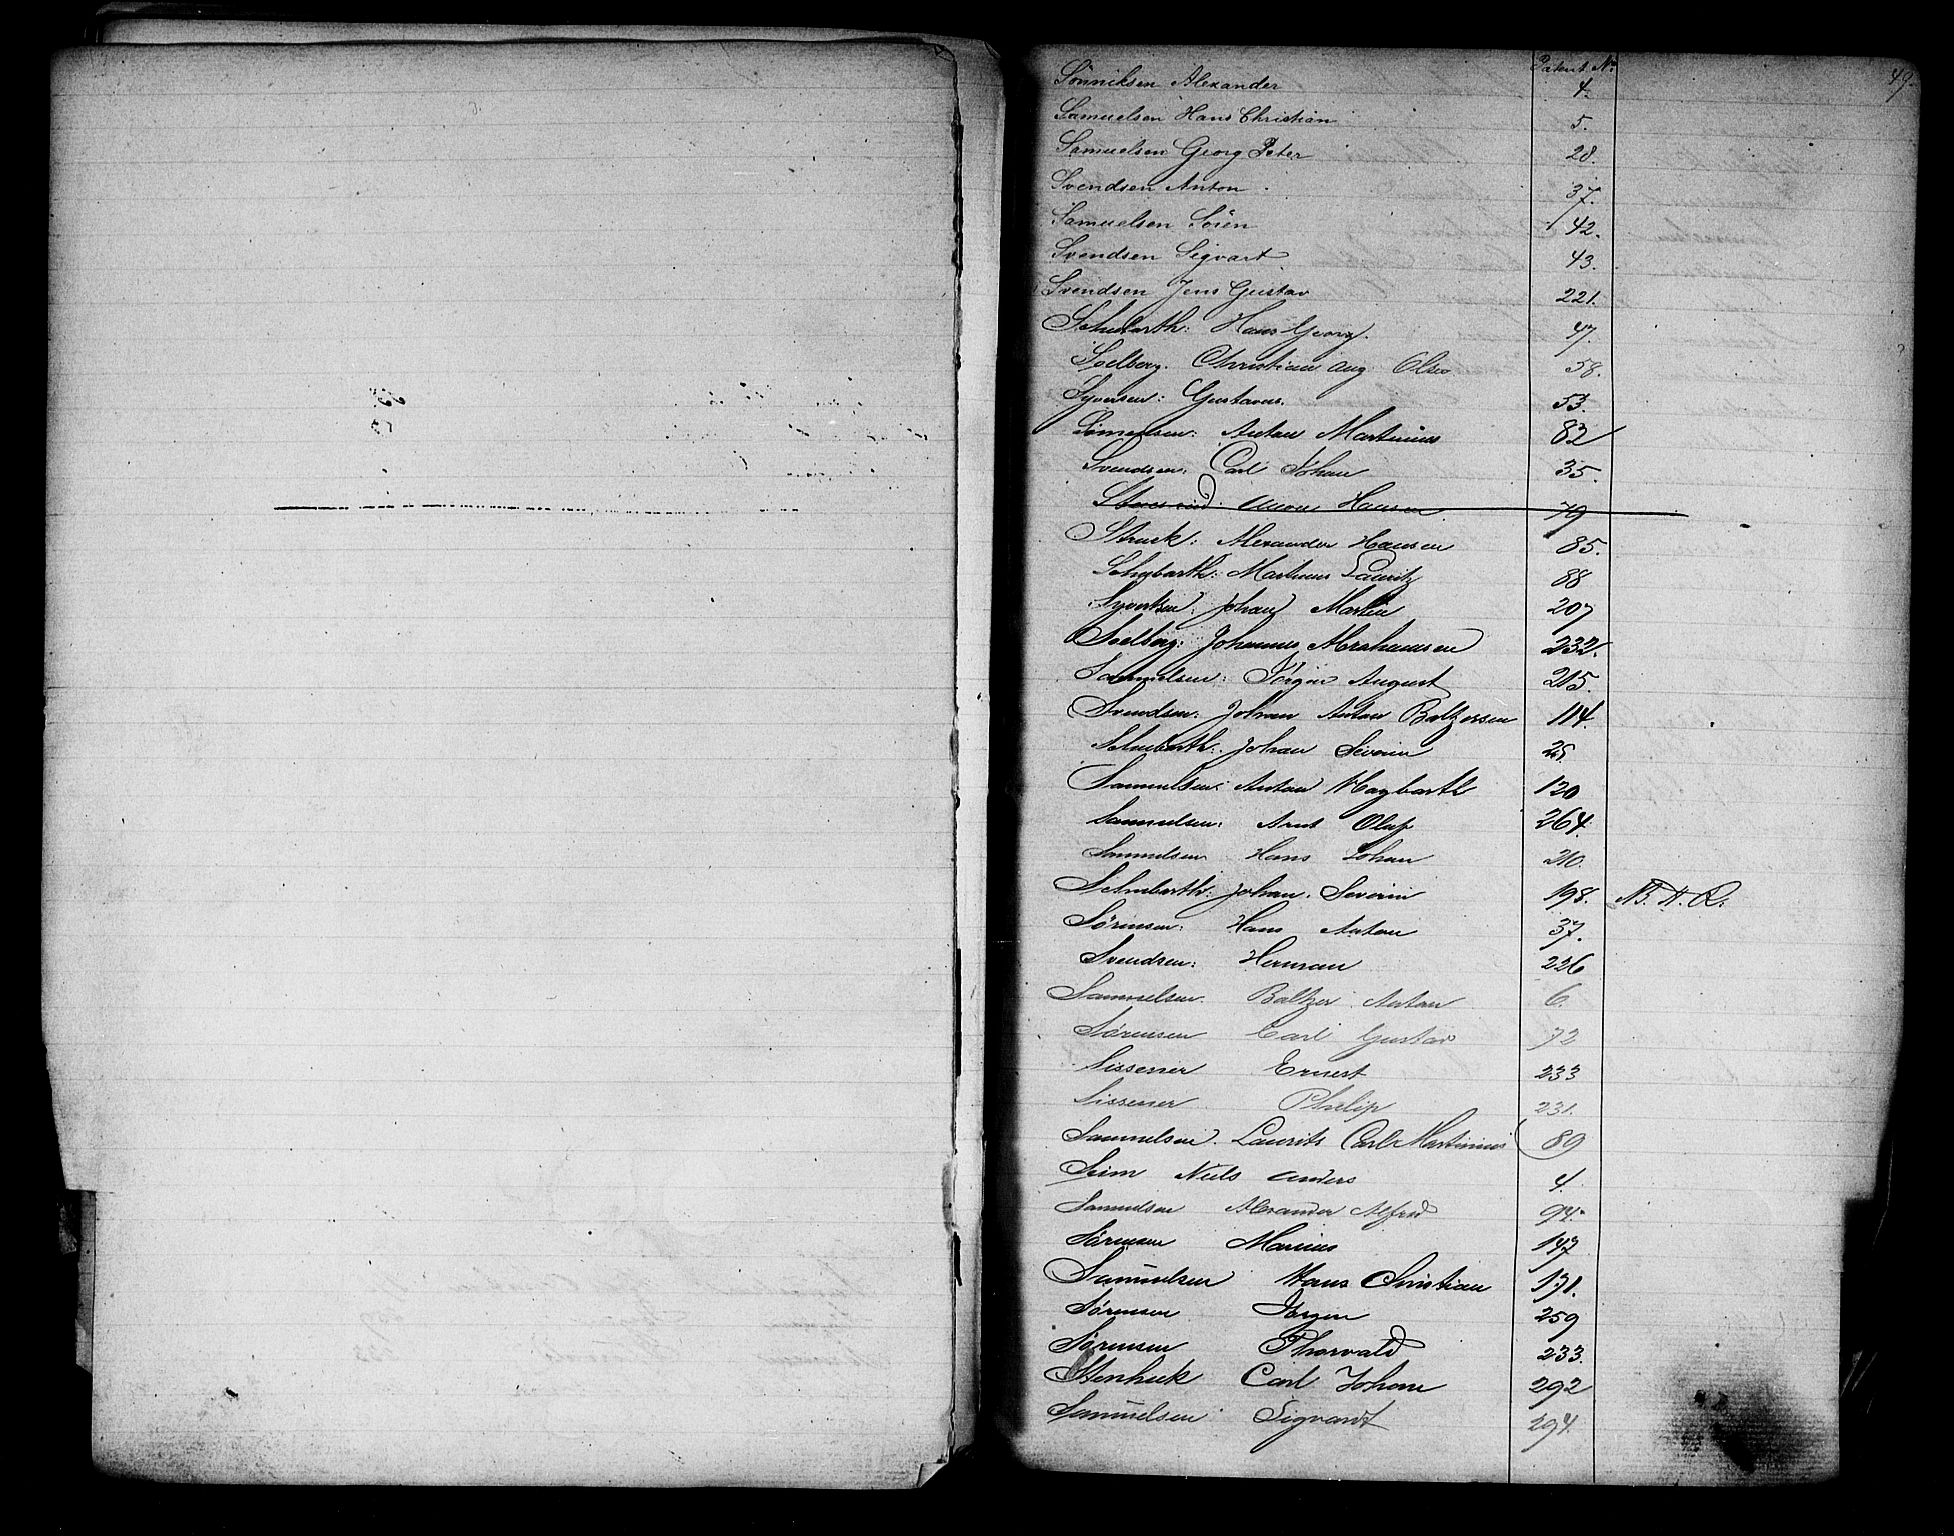 Patent No
49.
Sönniksen Alexander 4.
Samuelsen Hans Christian 5.
Samuelsen Georg Peter 28.
Svendsen Anton 37.
Samuelsen Sören 42.
Svendsen Sigvart 43.
Svendsen Jens Gustav 221.
Schubarth: Hans Georg. 47.
Soelberg. Christian Aug. Olsen 58.
Syversen: Gustavus. 53.
Samuelsen: Anton Martinius 82
Svendsen: Carl Johan 35.
Hansen 79
Struck: Alexander Hansen 85.
Schubarth: Martinus Lauritz 88
Syvertsen: Johan Martin 207
Soelberg: Johannes Abrahamsen 232.
Samuelsen: Jörgen August 215.
Svendsen: Johan Anton Baltzersen 114.
Schubarth: Johan Severin 25.
Samuelsen: Anton Hagbarth 120
Samuelsen: Arnt Olaf 264.
Samuelsen Hans Johan 210.
Schubarth: Johan. Severin 198. N. R.
Sørensen: Hans Anton 37.
Svendsen: Herman 226
Samuelsen. Baltzer Anton 6.
Sørensen Carl Gustav 72
Sissener Ernest 233
Sissener Philip 231.
Samuelsen. Laurits Carl Martinius 89
Seim Niels Anders 4.
Samuelsen Alexander Alfred 94.
Sørensen Marius 147
Samuelsen Hans Christian 171.
Sørensen Jørgen 259
Sørensen Thorvald 233.
Stenhuk Carl Johan 292
Samuelsen Sigvardt 294.